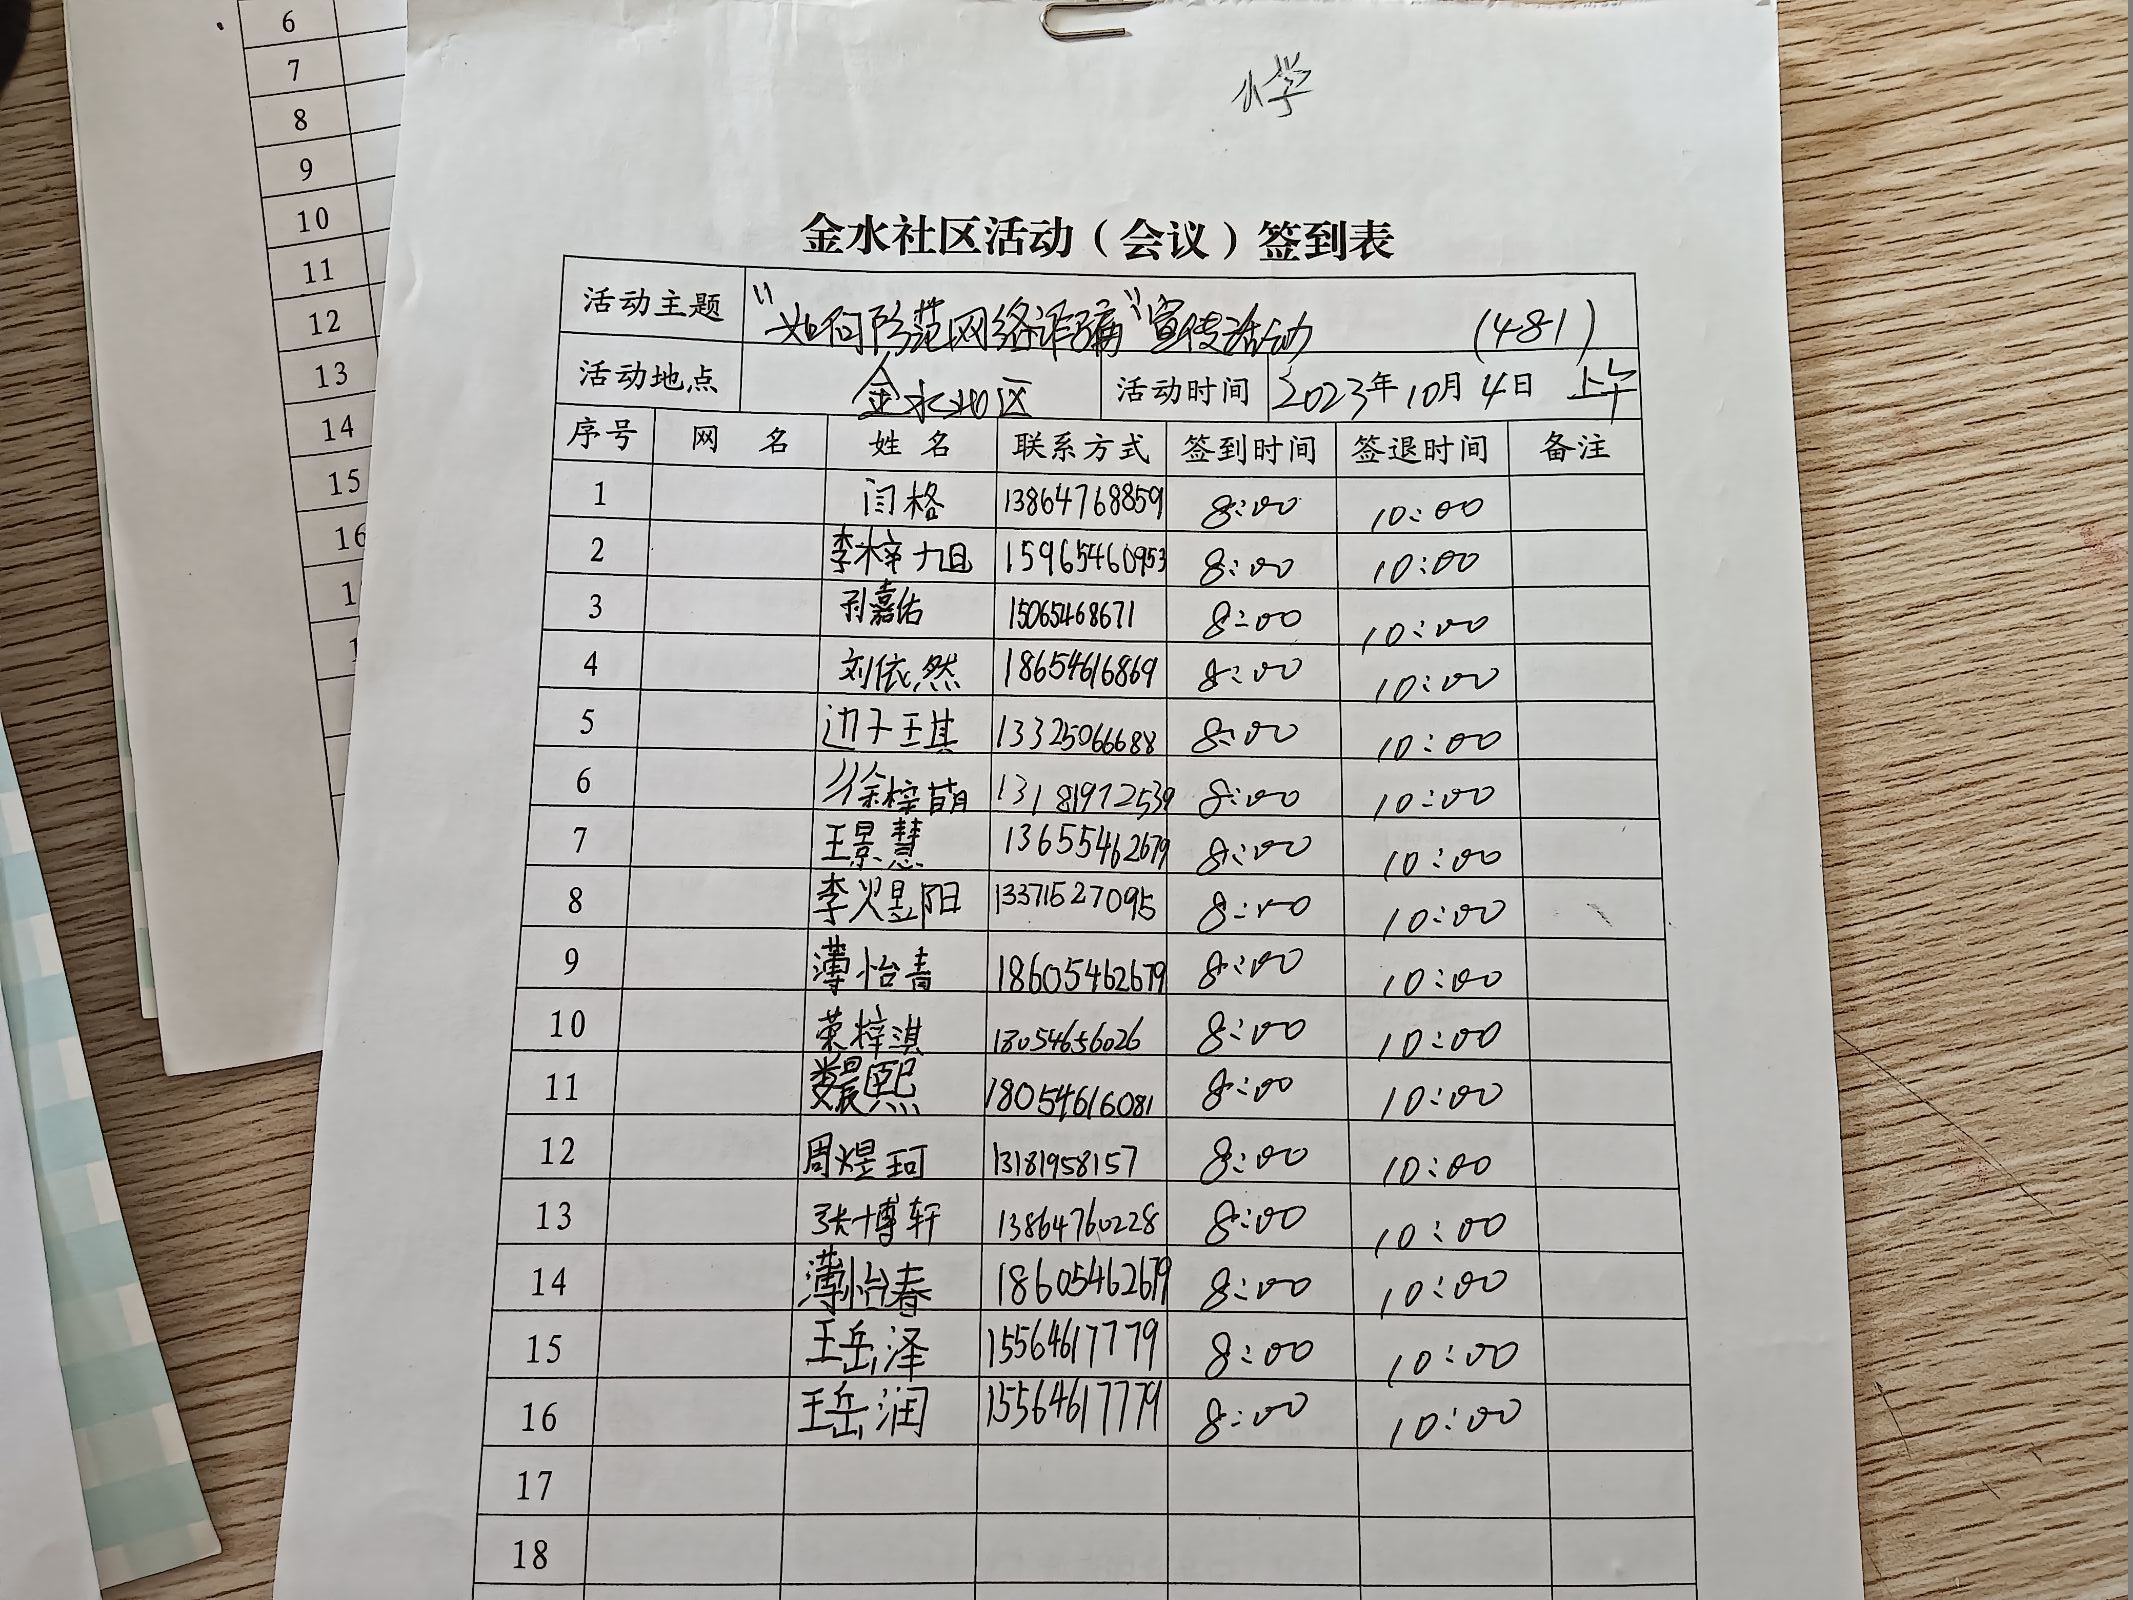 小学
金水社区活动（会议）签到表
活动主题 "如何防范网络诈骗"宣传活动 (481)
活动地点 金水社区 活动时间 2023年10月4日 上午
序号 网 名 姓 名 联系方式 签到时间 签退时间 备注
1 闫格 13864768859 8:00 10:00
2 李梓旭 15965460953 8:00 10:00
3 孙嘉佑 15065468671 8:00 10:00
4 刘依然 18654616869 8:00 10:00
5 边子琪 13325066688 8:00 10:00
6 徐梓萌 13181972539 8:00 10:00
7 王景慧 13655462679 8:00 10:00
8 李煜阳 13371527095 8:00 10:00
9 薄怡青 18605462679 8:00 10:00
10 荣梓淇 18054656026 8:00 10:00
11 熙 18054616081 8:00 10:00
12 周煜珂 13181958157 8:00 10:00
13 张博轩 13864760228 8:00 10:00
14 薄怡春 18605462679 8:00 10:00
15 王岳泽 15564617779 8:00 10:00
16 王岳润 15564617779 8:00 10:00
17
18
6
7
8
9
10
11
12
13
14
15
16